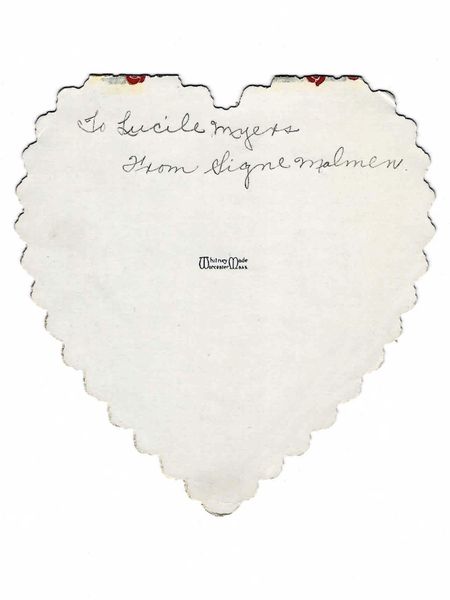 To Lucile Myers
From Signe Malmen.
Whitney Made
Worcester Mass.